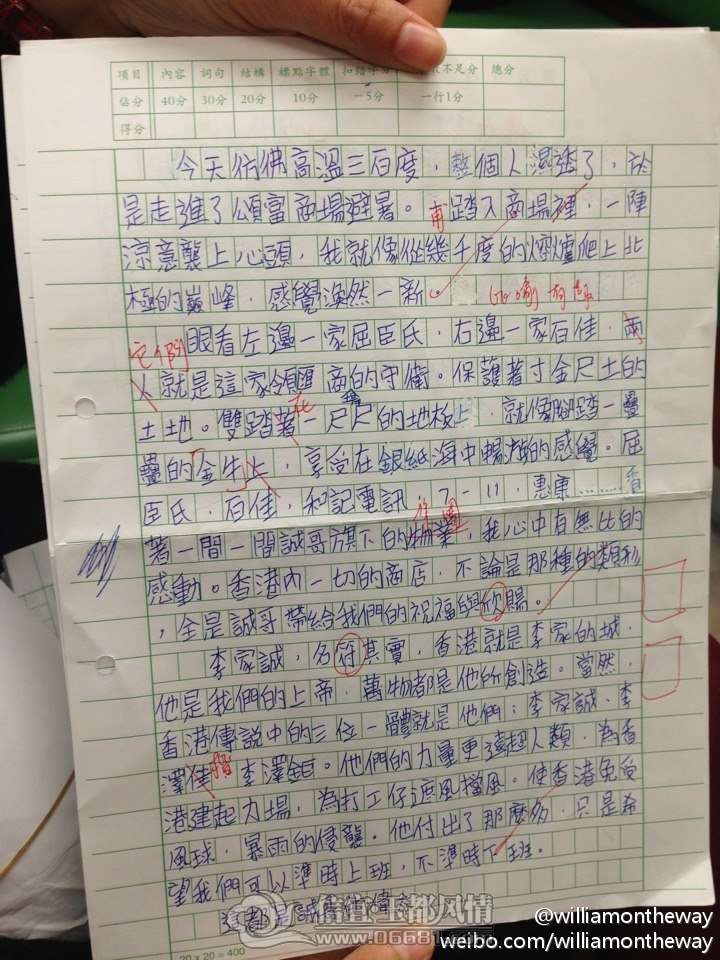 項目 內容 詞句 結構 標點字體 扣錯字 不足分 總分
佔分 40分 30分 20分 10分 -5分 一行1分
得分
今天仿佛高溫三百度，整個人濕透了，於
是走進了頌富商場避暑。甫踏入商場裡，一陣
涼意襲上心頭，我就像從幾千度的熔爐爬上北
極的巔峰，感覺渙然一新。
比喻有趣
眼看左邊一家屈臣氏，右邊一家百佳，兩
它們
人就是這家領匯商的守衛。保護著寸金尺土的
土地。雙踏著一尺尺的地板上，就像腳踏一疊
在
疊的「金牛」上，享受在銀紙海中暢游的感覺。屈
臣氏，百佳，和記電訊，7-11，惠康………看
著一間一間誠哥旗下的物業，我心中有無比的
感動。香港內一切的商店，不論是那種的類形
，全是誠哥帶給我們的祝福與欣賜。
李家誠，名符其實，香港就是李家的城，
他是我們的上帝，萬物都是他所創造。當然，
香港傳說中的三位一體就是他們：李家誠、李
澤佳 楷 李澤鉅。他們的力量更遠超人類，為香
港建起力場，為打工仔遮風擋風。使香港免受
風球，暴雨的侵襲。他付出了那麼多，只是希
望我們可以準時上班，不準時下班。
這都是誠哥的偉大
20 x 20 = 400
www.06681.com
@williamontheway
weibo.com/williamontheway